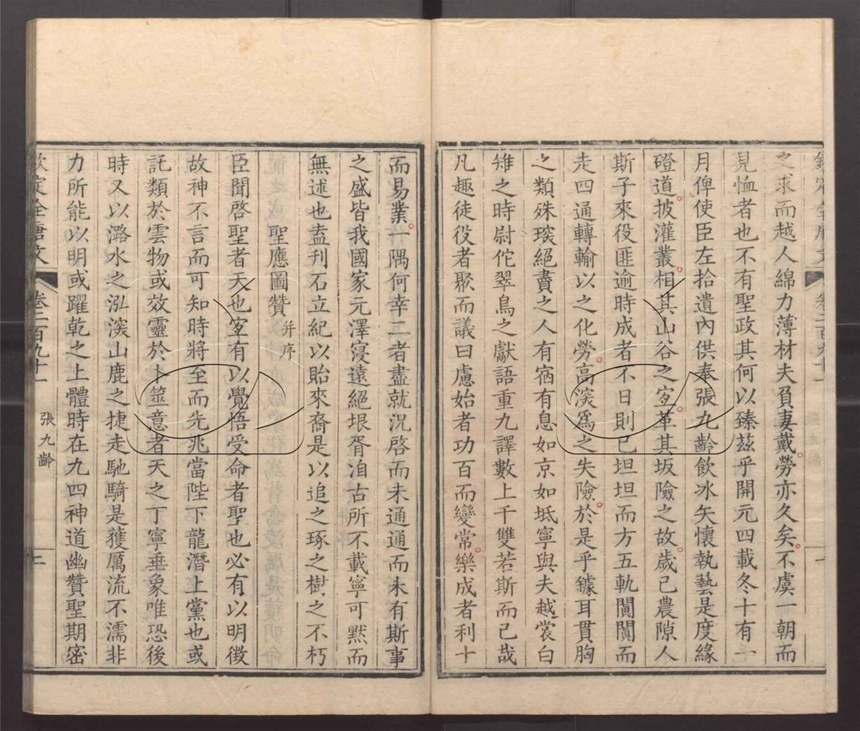 欽定全唐文 卷二百九十一 一
之求而越人綿力薄材夫負妻戴勞亦久矣不虞一朝而
見恤者也不有聖政其何以臻茲乎開元四載冬十有一
月俾使臣左拾遺內供奉張九齡飲冰矢懷執藝是度緣
磴道披灌叢相其山谷之宜革其坂險之故歲已農隙人
斯子來役匪逾時成者不日則已坦坦而方五軌闐闐而
走四通轉輸以之化勞高深爲之失險於是乎鐻耳貫胸
之類殊琛絕賮之人有宿有息如京如坻寧與夫越裳白
雉之時尉佗翠鳥之獻語重九譯數上千雙若斯而已哉
凡趣徒役者聚而議曰慮始者功百而變常樂成者利十
而易業一隅何幸二者盡就況啓而未通通而未有斯事
之盛皆我國家元澤寖遠絕垠胥洎古所不載寧可默而
無述也盍刊石立紀以貽來裔是以追之琢之樹之不朽
聖應圖贊并序
臣聞啓聖者天也宜有以覺悟受命者聖也必有以明徵
故神不言而可知時將至而先兆當陛下龍潛上黨也或
託類於雲物或效靈於卜筮意者天之丁寧垂象唯恐後
時又以潞水之泓深山鹿之捷走馳騎是獲厲流不濡非
力所能以明或躍乾之上體時在九四神道幽贊聖期密
欽定全唐文 卷二百九十一 張九齡 二